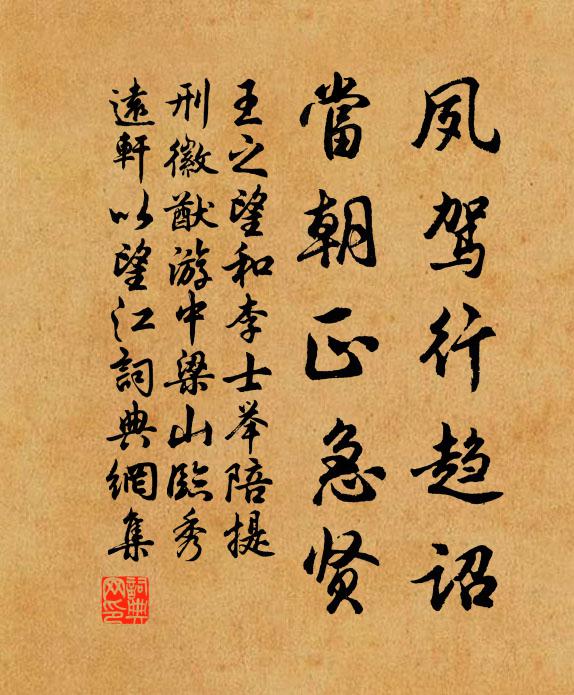 夙駕行趋詔
當朝正急贤
王之望和李士举陪提
刑徽猷游中梁山臨秀
遠軒以望江詞典網集
詞典网印